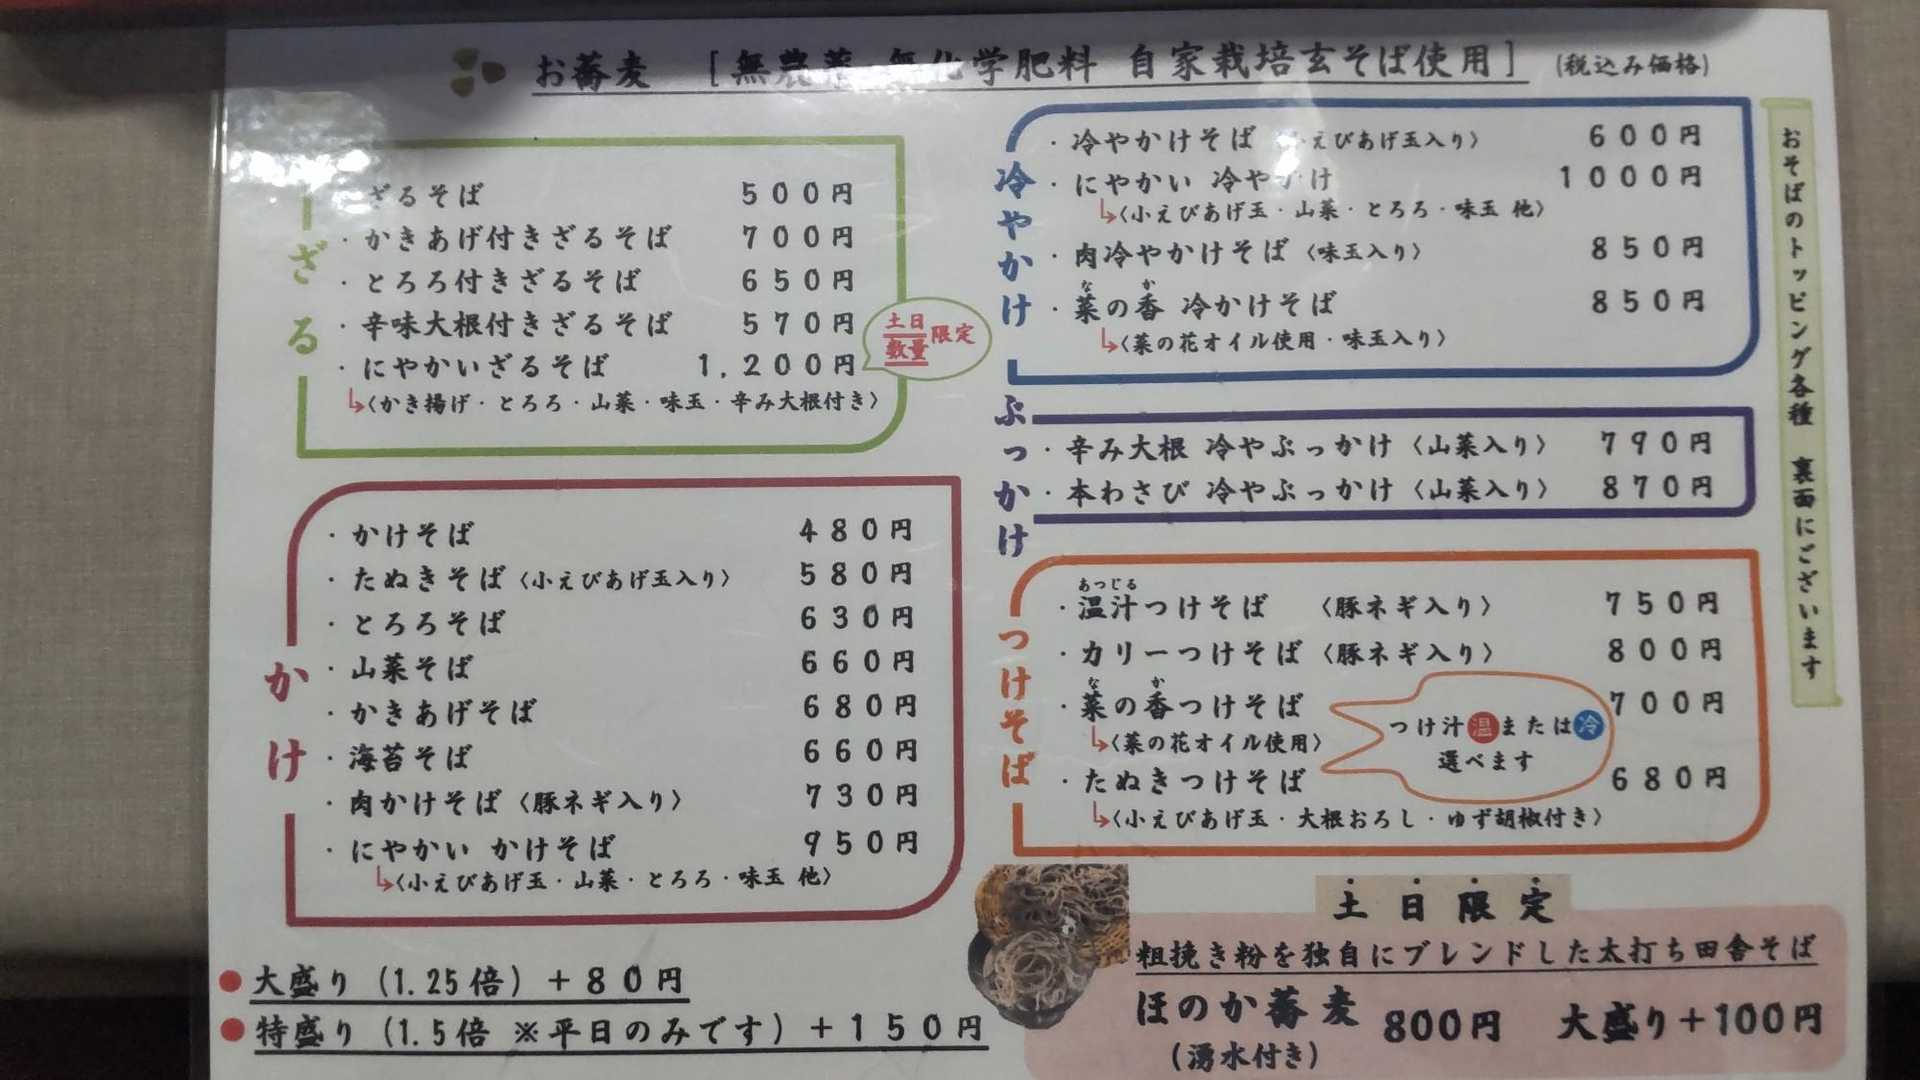 お蕎麦 [無農薬 無化学肥料 自家栽培玄そば使用] (税込み価格)
ざる
・ざるそば 500円
・かきあげ付きざるそば 700円
・とろろ付きざるそば 650円
・辛味大根付きざるそば 570円
・にやかいざるそば 1,200円
土日数量限定
↳〈かき揚げ・とろろ・山菜・味玉・辛み大根付き〉
かけ
・かけそば 480円
・たぬきそば〈小えびあげ玉入り〉 580円
・とろろそば 630円
・山菜そば 660円
・かきあげそば 680円
・海苔そば 660円
・肉かけそば〈豚ネギ入り〉 730円
・にやかい かけそば 950円
↳〈小えびあげ玉・山菜・とろろ・味玉 他〉
●大盛り(1.25倍)+80円
●特盛り(1.5倍 ※平日のみです)+150円
冷やかけ
・冷やかけそば〈小えびあげ玉入り〉 600円
・にやかい 冷やかけ 1000円
↳〈小えびあげ玉・山菜・とろろ・味玉 他〉
・肉冷やかけそば〈味玉入り〉 850円
な か
・菜の香 冷かけそば 850円
↳〈菜の花オイル使用・味玉入り〉
ぶっかけ
・辛み大根 冷やぶっかけ〈山菜入り〉 790円
・本わさび 冷やぶっかけ〈山菜入り〉 870円
つけそば
あつじる
・温汁つけそば 〈豚ネギ入り〉 750円
・カリーつけそば〈豚ネギ入り〉 800円
な か
・菜の香つけそば 700円
↳〈菜の花オイル使用〉
つけ汁温または冷
選べます
・たぬきつけそば 680円
↳〈小えびあげ玉・大根おろし・ゆず胡椒付き〉
おそばのトッピング各種 裏面にございます
土日限定
粗挽き粉を独自にブレンドした太打ち田舎そば
ほのか蕎麦 800円 大盛り+100円
(湧水付き)